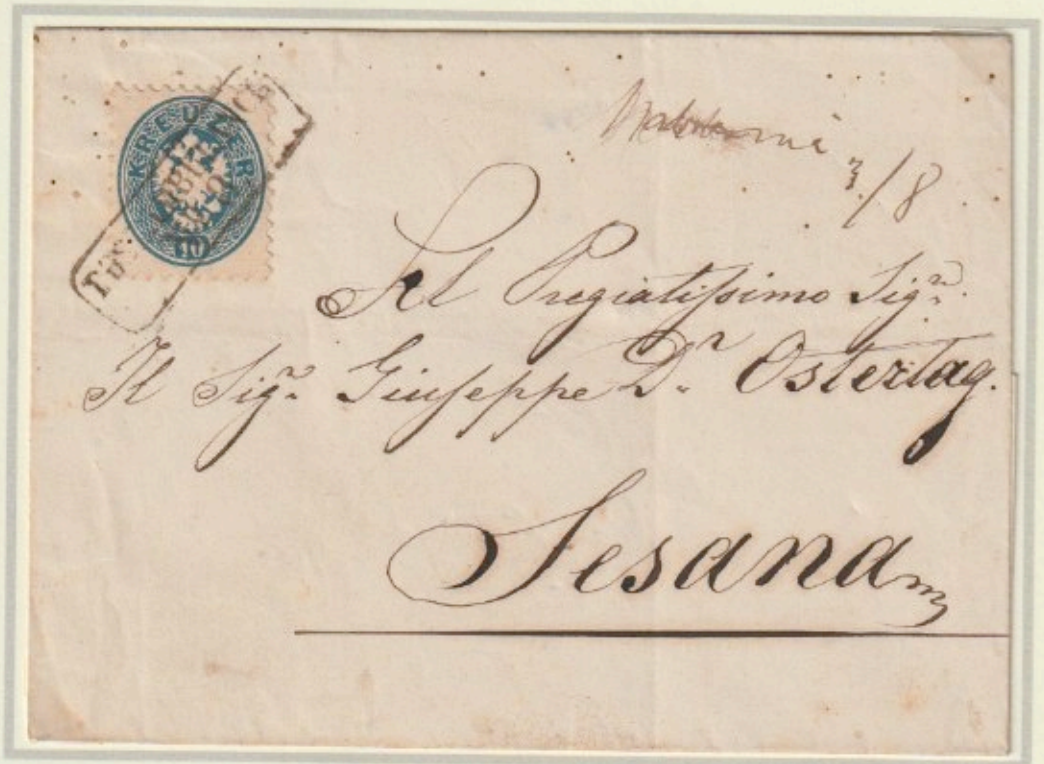 KREUZER
10
3/8
Al Pregiatissimo Sigr.
Il Sigr. Giuseppe Dr. Ostertag.
Sesana